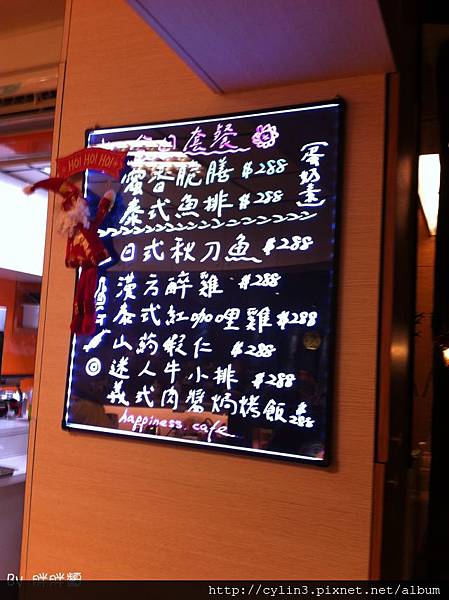 HO! HO! HO!
套餐
香脆膳 $288
泰式魚排 $288
(蛋奶素)
日式秋刀魚 $288
漢方醉雞 $288
泰式紅咖哩雞 $288
山藥蝦仁 $288
迷人牛小排 $288
義式肉醬焗烤飯 $288
happiness.cafe
By 胖胖
http://cylin3.pixnet.net/album